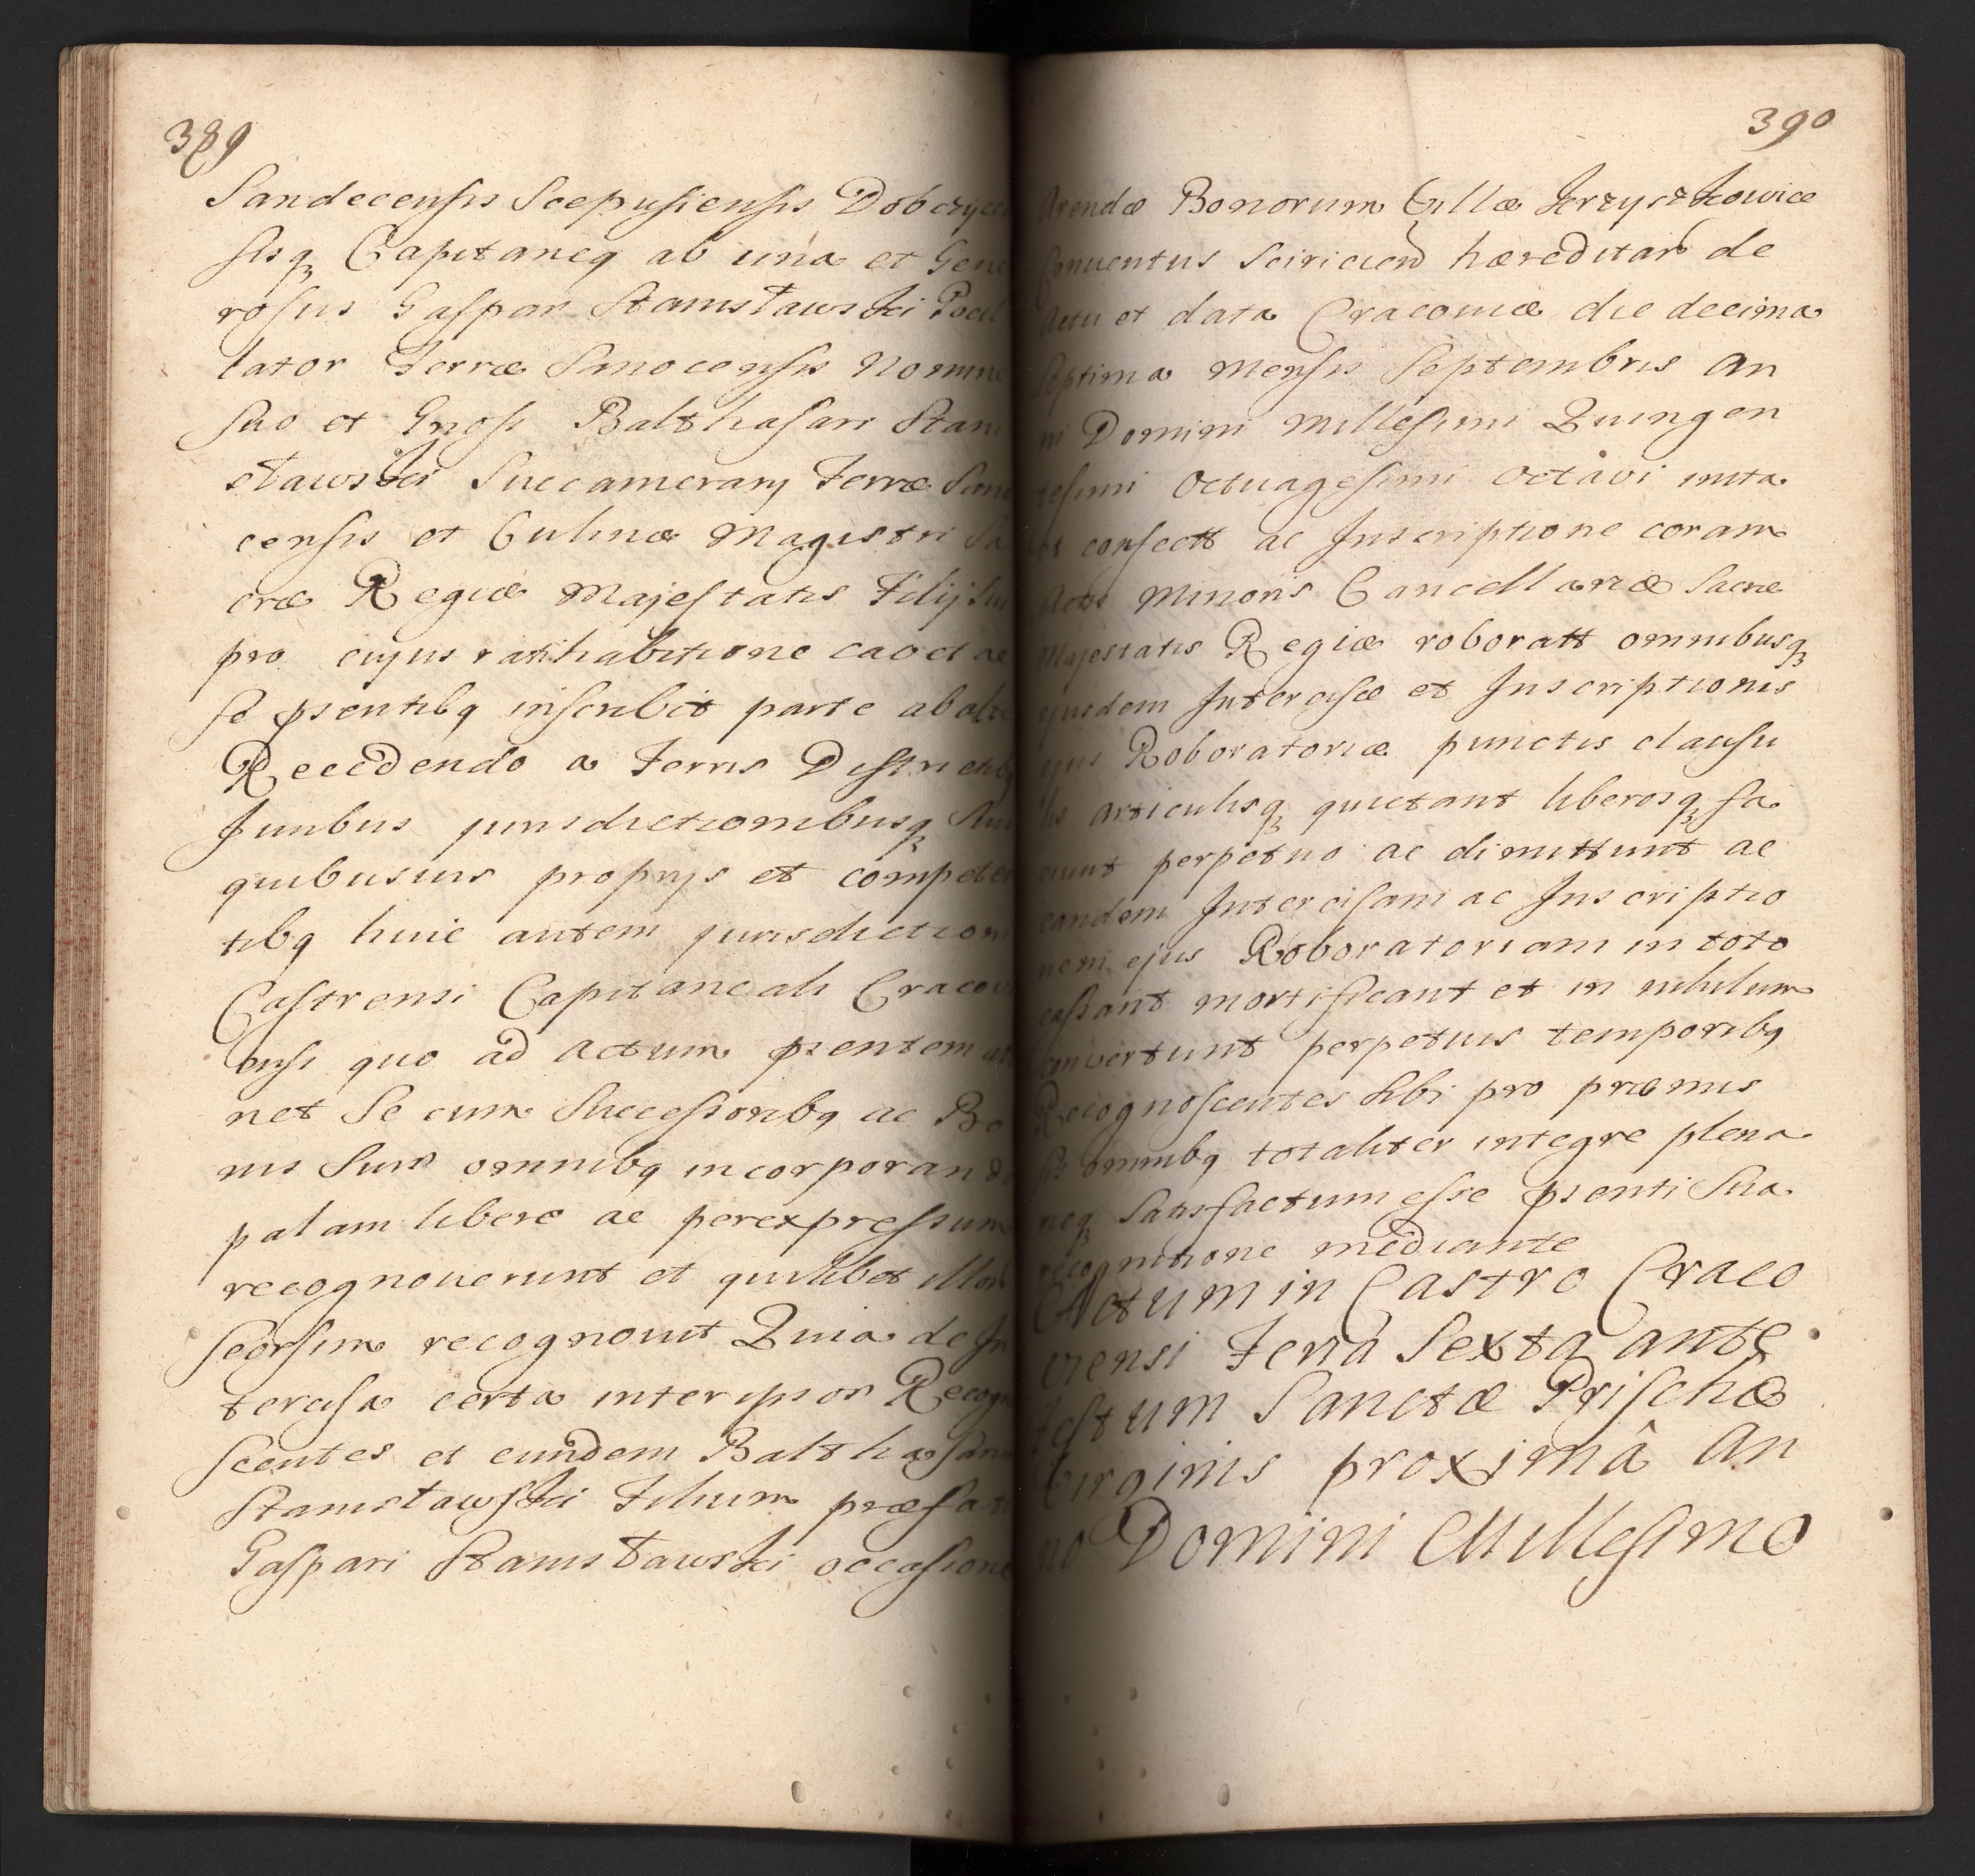 389
Sandecensis Scepusiensis Dobczycen
sisq Capitaneq ab una et Gene
rosus Gaspar Stanisławski Pocil
lator Terræ Sanocensis Nomine
suo et Gnosi Balthasari Stani
sławski Succamerarij Terræ Sano
censis et Culinæ Magistri Sa
cræ Regiæ Majestatis Filij sui
pro cujus ratihabitione caoet ac
se pñentibq inscribit parte ab altera
Recedendo a Terris Districtibq
Juribus jurisdictionibusq suis
quibusuis proprijs et competen
tibq huic autem jurisdictioni
Castrensi Capitaneali Cracovi
ensi quo ad actum pñentem atti
net Se cum Successoribq ac Bo
nis Suis omnibq incorporando
palam libere ac per expressum
recognouerunt et quilibet illorũ
seorsim recognouit Quia de In
tercisa certa inter ipsos Recogno
scentes et eundem Balthasarum
Stanisławski Filium præfati
Gaspari Stanisławski occasione
390
Arendæ Bonorum Villæ Jerzyszkowice
Conuentus Sciricien hæreditar de
Actu et data Cracoviæ die decima
Septima Mensis Septembris An
ni Domini Millesimi Quingen
tesimi Octuagesimi Octavi inita
et confectt ac Inscriptione coram
Actis Minoris Cancellariæ Sacræ
Majestatis Regiæ roboratt omnibusq
ejusdem Intercisæ et Inscriptionis
ejus Roboratoriæ punctis clausu
lis articulisq quietant liberosq fa
ciunt perpetuo ac dimittunt ac
eandem Intercisam ac Inscriptio
nem ejus Roboratoriam in toto
cassant mortificant et in nihilum
convertunt perpetuis temporibq
Recognoscentes sibi pro præmis
sis omnibq totaliter integre plena
rieq Satisfactum esse pñenti Sua
recognitione mediante
Actum in Castro Craco
viensi Feria Sexta ante
festum Sanctæ Prischæ
Virginis proximâ An
no Domini Millesimo